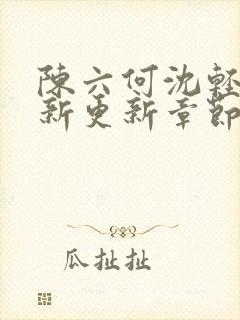 陳六何沈輕
新更新章節
瓜扯扯